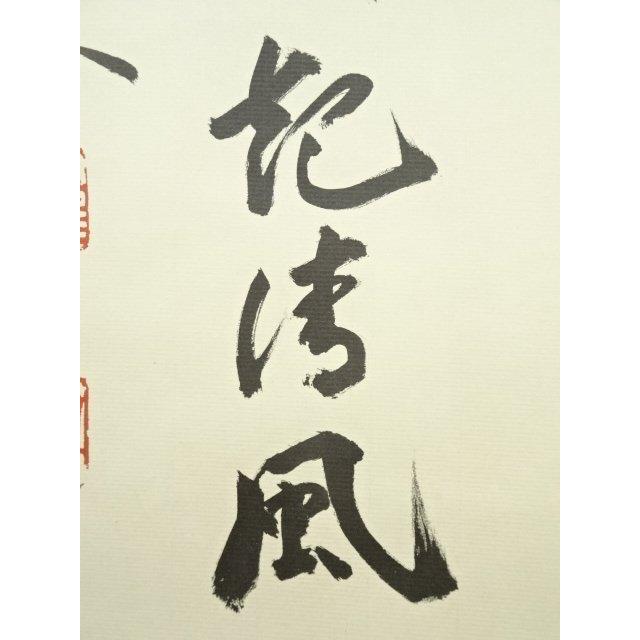 起清風